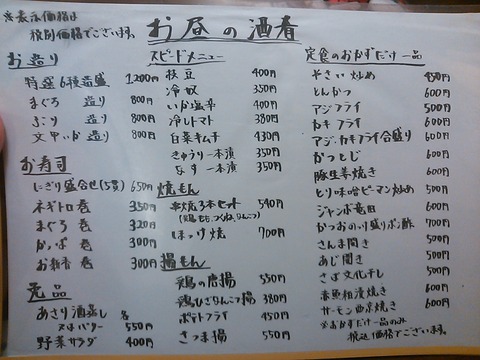 ※表示価格は
税別価格でございます。
お昼の酒肴
お造り
特選6種盛 1,200円
まぐろ 造り 800円
ぶり 造り 800円
文甲いか 造り 800円
お寿司
にぎり盛合せ(5貫) 650円
ネギトロ 巻 350円
まぐろ 巻 320円
かっぱ 巻 300円
お新香 巻 300円
逸品
あさり酒蒸し 各
又はバター 550円
野菜サラダ 400円
スピードメニュー
枝豆 400円
冷奴 350円
いか塩辛 400円
冷しトマト 380円
白菜キムチ 430円
きゅうり一本漬 350円
なす一本漬 350円
焼もん
串焼3本セット 540円
(鶏もも,つくね,なんこつ)
ほっけ焼 700円
揚もん
鶏の唐揚 550円
鶏ひざなんこつ揚 380円
ポテトフライ 450円
さつま揚 550円
定食のおかずだけ一品
やさい炒め 450円
とんかつ 600円
アジフライ 500円
カキフライ 600円
アジ・カキフライ合盛り 600円
かつとじ 600円
豚生姜焼き 600円
とり味噌ピーマン炒め 500円
ジャンボ竜田 600円
かつおのハリ盛りポン酢 700円
さんま開き 500円
あじ開き 500円
さば文化干し 500円
赤魚粕漬焼き 600円
サーモン西京焼き 600円
※おかずだけ一品のみ
税込価格でございます。